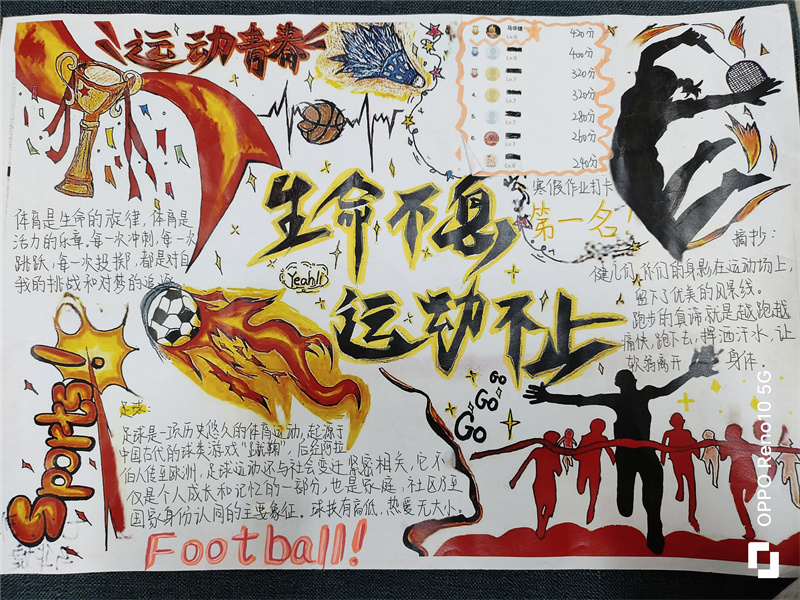 运动青春
马华健
Lv.8
430分
400分
320分
4.
320分
5.
280分
6.
260分
Lv.6
240分
寒假作业打卡
第一名!
生命不息
运动不止
Yeah!!
体育是生命的旋律,体育是
活力的乐章,每一次冲刺,每一次
跳跃,每一次投掷,都是对自
我的挑战和对梦的追逐
摘抄:
健儿们,你们的身影在运动场上,
留下了优美的风景线。
跑步的真谛就是越跑越
痛快,跑下去,挥洒汗水,让
软弱离开 身体
Sports!
足球:
足球是一项历史悠久的体育运动,起源于
中国古代的球类游戏"蹴鞠",后经阿拉
伯人传至欧洲,足球运动还与社会变迁紧密相关,它不
仅是个人成长和记忆的一部分,也是家庭,社区乃至
国家身份认同的主要象征。球技有高低,热爱无大小。
Go
Go
Go
Football!
OPPO Reno10 5G